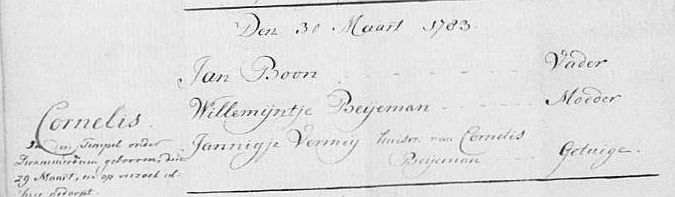 Den 30 Maart 1783.
Jan Boon Vader
Willemijntje Beijeman Moeder
Cornelis.
Jannigje Verweij huisvr. van Cornelis
Beijeman Getuige.
in den Tempel onder
geboren den
29 Maart, en op verzoek al-
hier gedoopt.